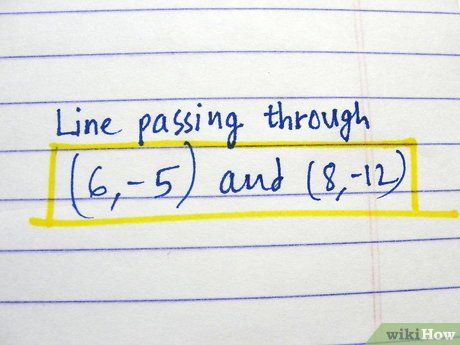 Line passing through
(6,-5) and (8,-12)
wikiHow